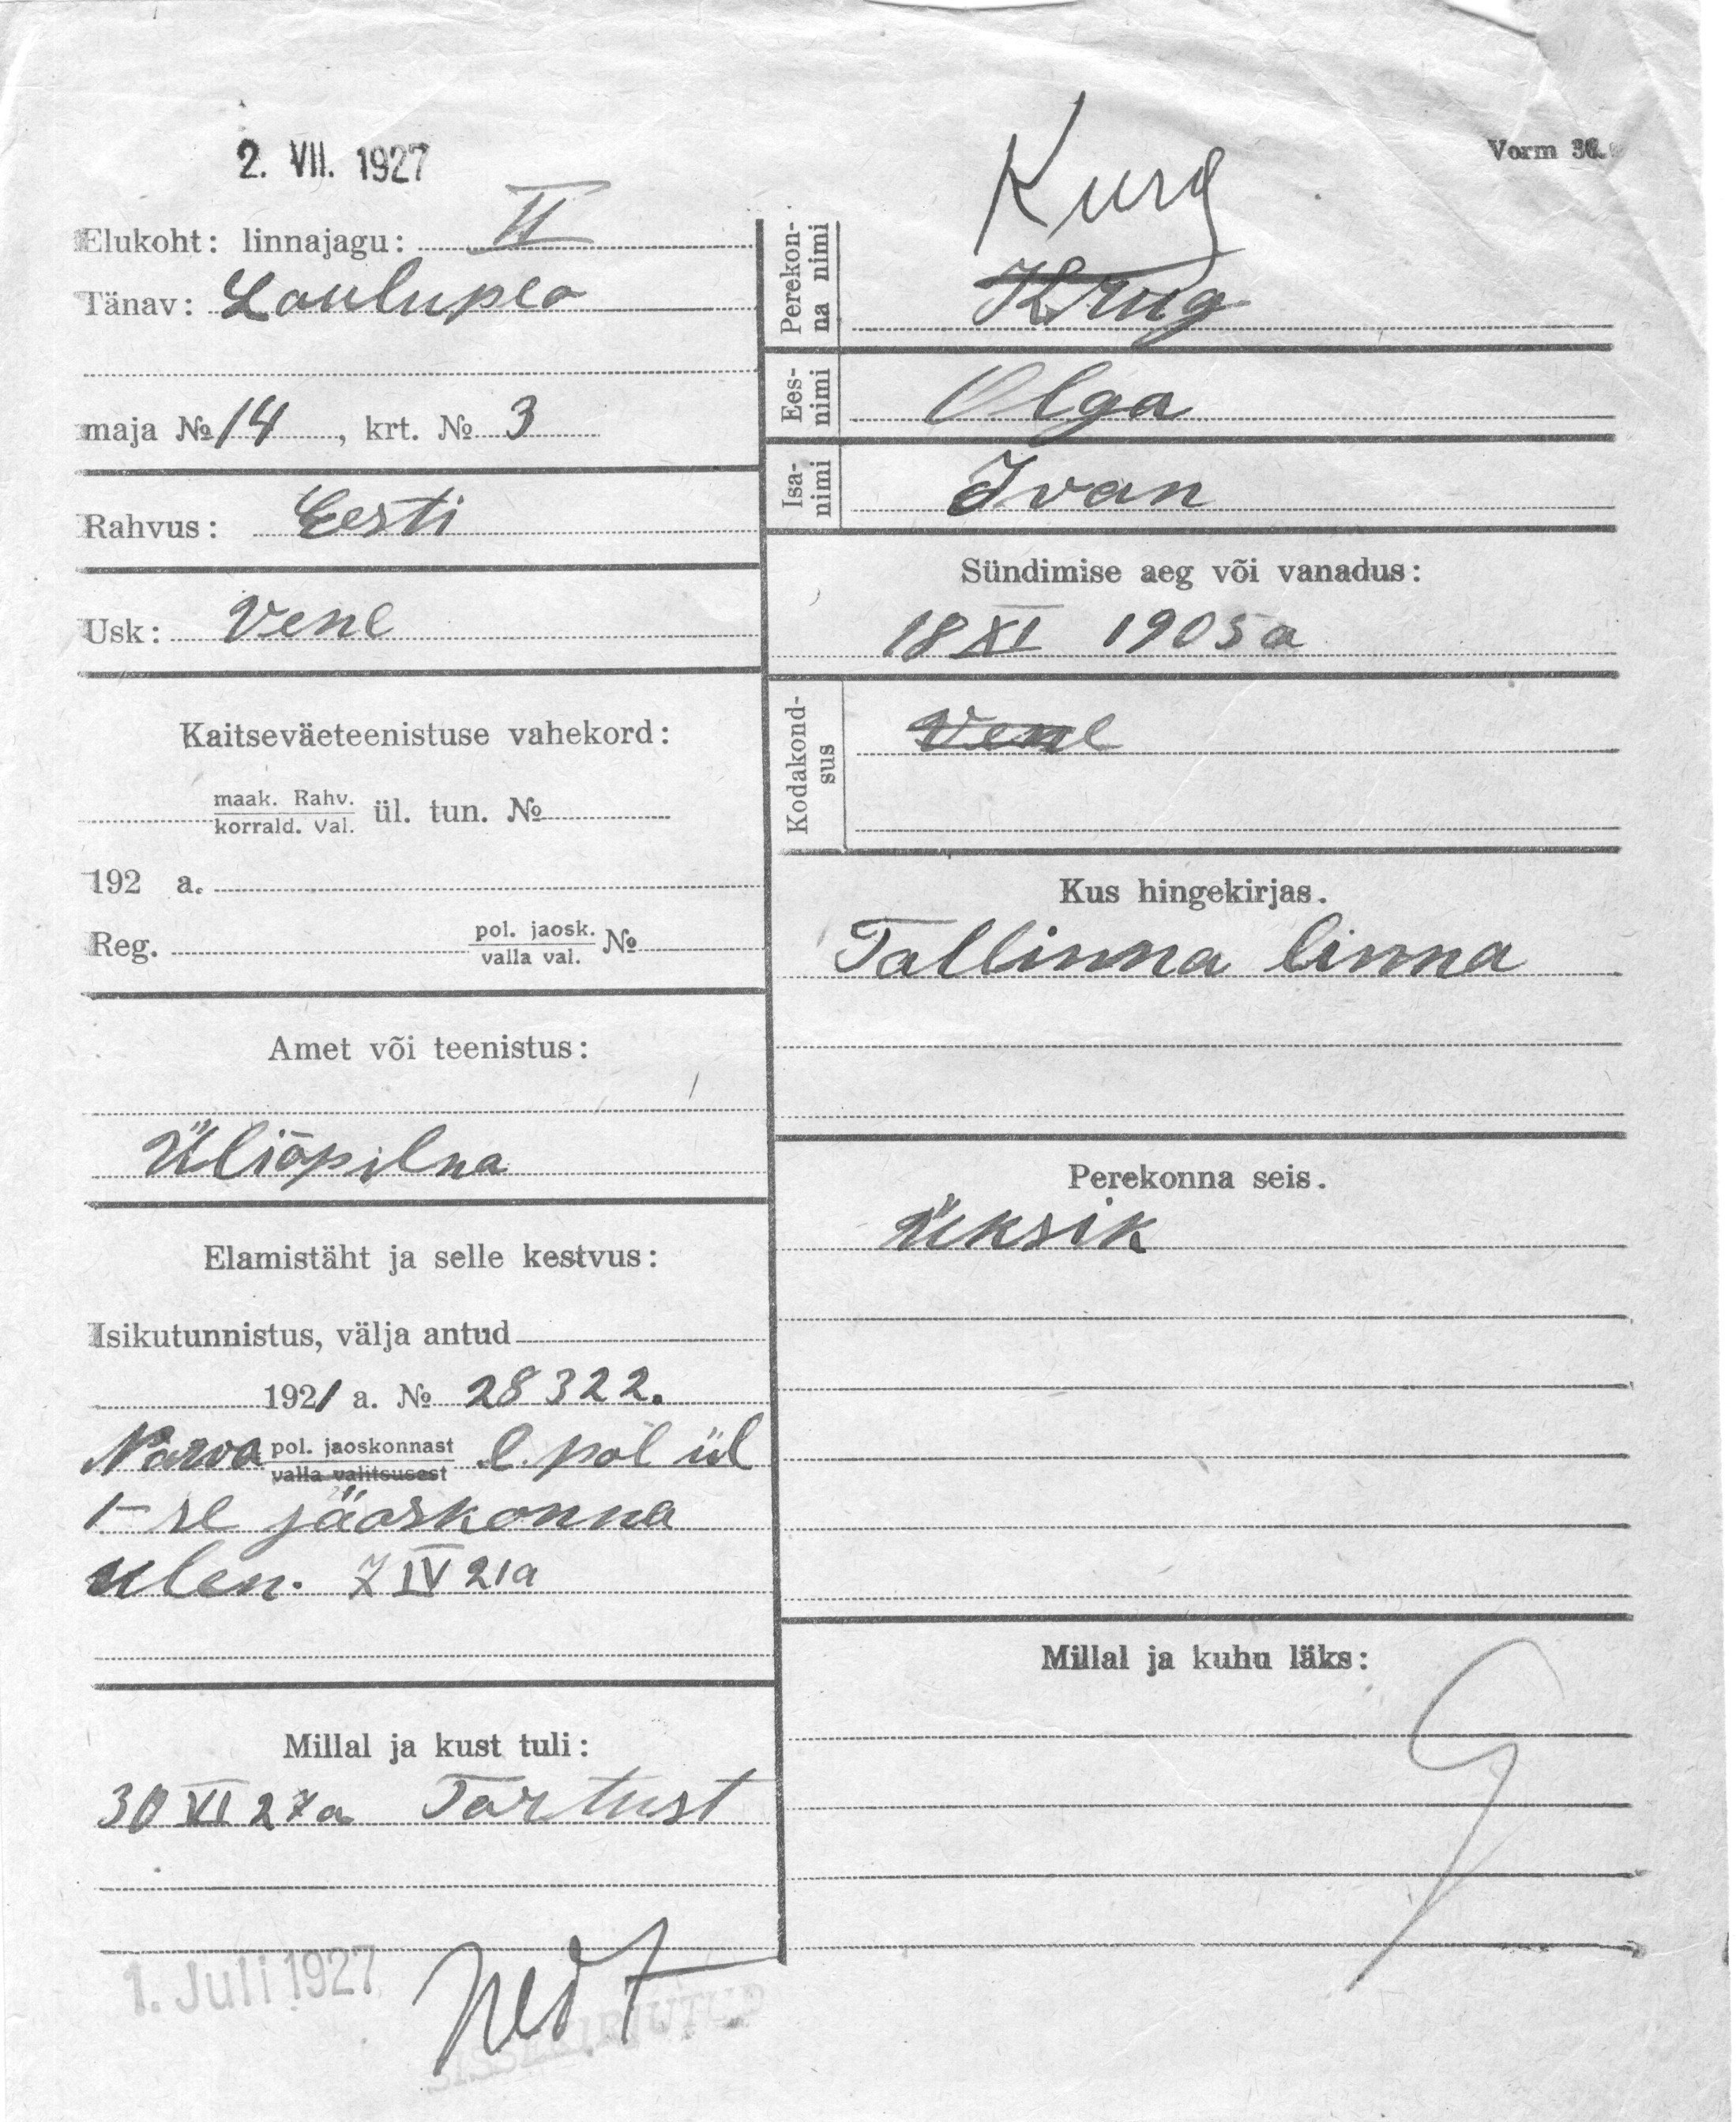 2. VII. 1927
Vorm 36.
Elukoht: linnajagu: II
Tänav: Laulupeo
maja № 14, krt. № 3
Rahvus: Eesti
Usk: Vene
Kaitseväeteenistuse vahekord:
maak. Rahv.
korrald. Val. ül. tun. №
192 a.
Reg. pol. jaosk. №
valla val.
Amet või teenistus:
Üliõpilna
Elamistäht ja selle kestvus:
Isikutunnistus, välja antud
1921 a. № 28322.
Narva pol. jaoskonnast l. pol ül
valla valitsusest
1-se jäoskonna
ülen. 7 IV 21a
Millal ja kust tuli:
30 VI 27a Tartust
1. Juli 1927
SISSEKIRJUTUD
Kurg
Perekon-
na nimi Krug
Ees-
nimi Olga
Isa-
nimi Ivan
Sündimise aeg või vanadus:
18 XI 1905 a
Kodakond-
sus Vene
Kus hingekirjas.
Tallinna linna
Perekonna seis.
Üksik
Millal ja kuhu läks: